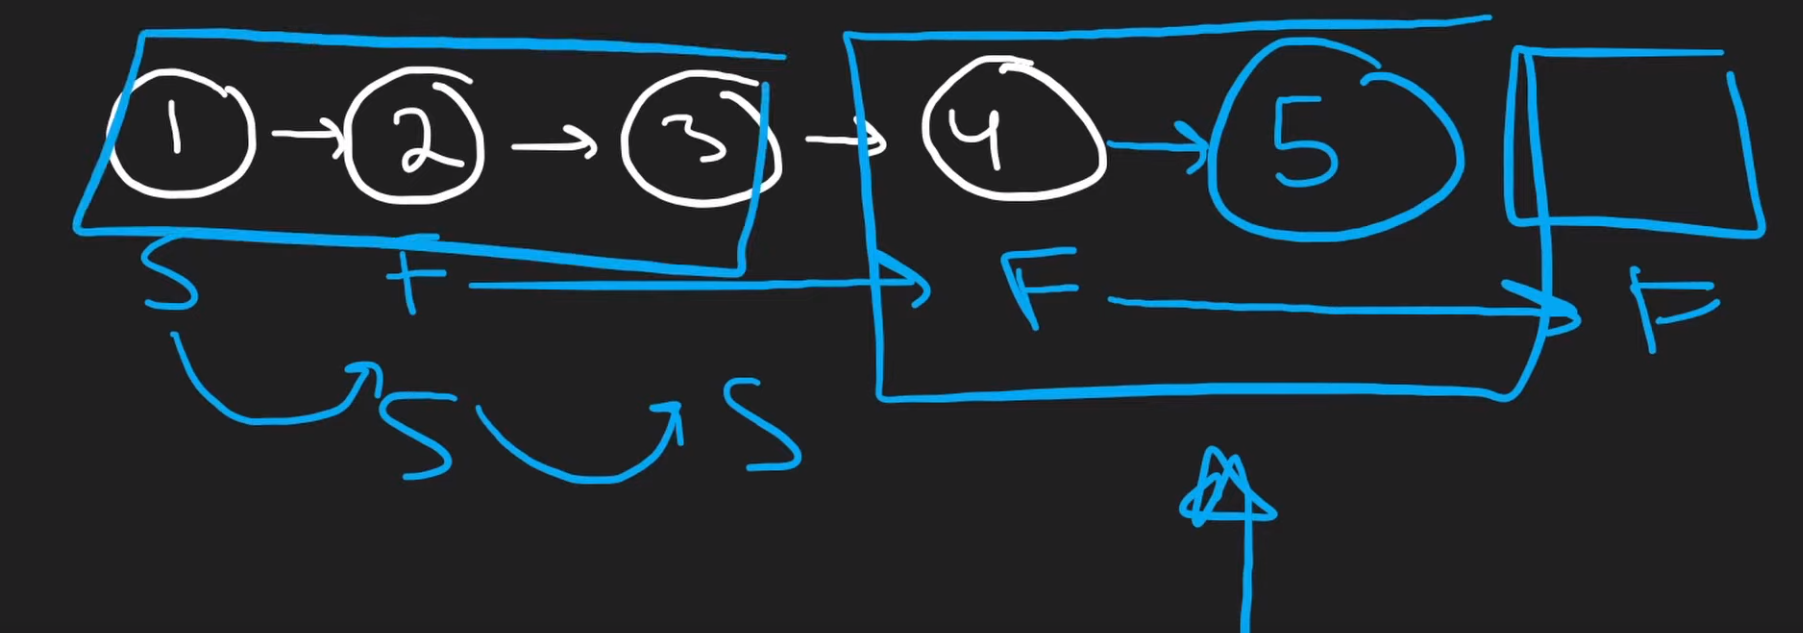 1 → 2 → 3 → 4 → 5
S F F F
S S